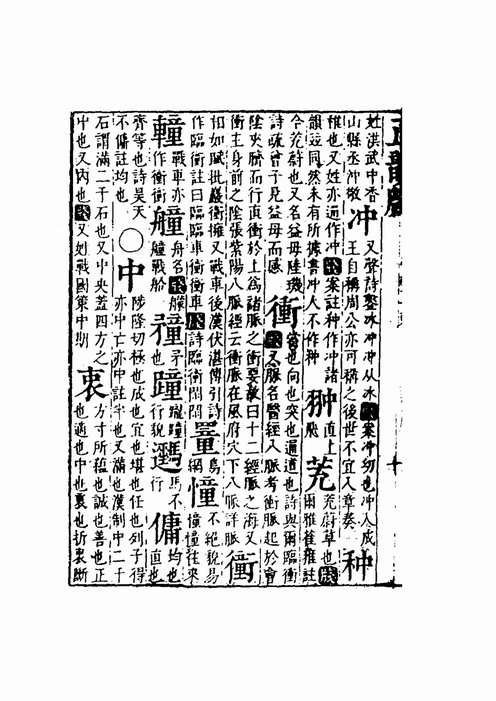 姓洪武中香山縣丞冲敬 冲 又聲詩鑿冰冲冲从冰 案冲幼也冲人成王自稱周公亦可稱之後世不宜入章奏 种
稚也又姓亦通作冲 案註种作冲諸韻迥同然未有所據書冲人不作种 翀 直上飛 茺 茺蔚草也 爾雅萑註
今茺蔚也又名益母陸璣詩疏曾子見益母而感 衝 當也向也突也通道也詩與爾臨衝 又脉名醫經八脉考衝脉起於會
陰夾臍而行直衝於上為諸脉之衝要故曰十二經脉之海又衝主身前之陰張紫陽八脉經云衝脉在風府穴下八脉詳脉 衝
扣如賦批巖衝擁又戰車後漢伏湛傳引詩作臨衝註曰臨臨車衝衝車 詩臨衝閑閑 罿 鳥網 憧 不絕貌易憧憧往來
䡴 戰車亦作衝衝 艟 舟名 艨艟戰船 矛也 蹱 躘蹱行貌 馬不行 傭 均也直也
齊等也詩昊天不傭註均也 ○ 中 陟隆切極也成也宜也堪也任也列子得亦中亡亦中註半也又滿也漢制中二千
石謂滿二千石也又中央蓋四方之中也又內也 又姓戰國策中期 衷 方寸所蘊也誠也善也正也適也中也裏也折衷斷